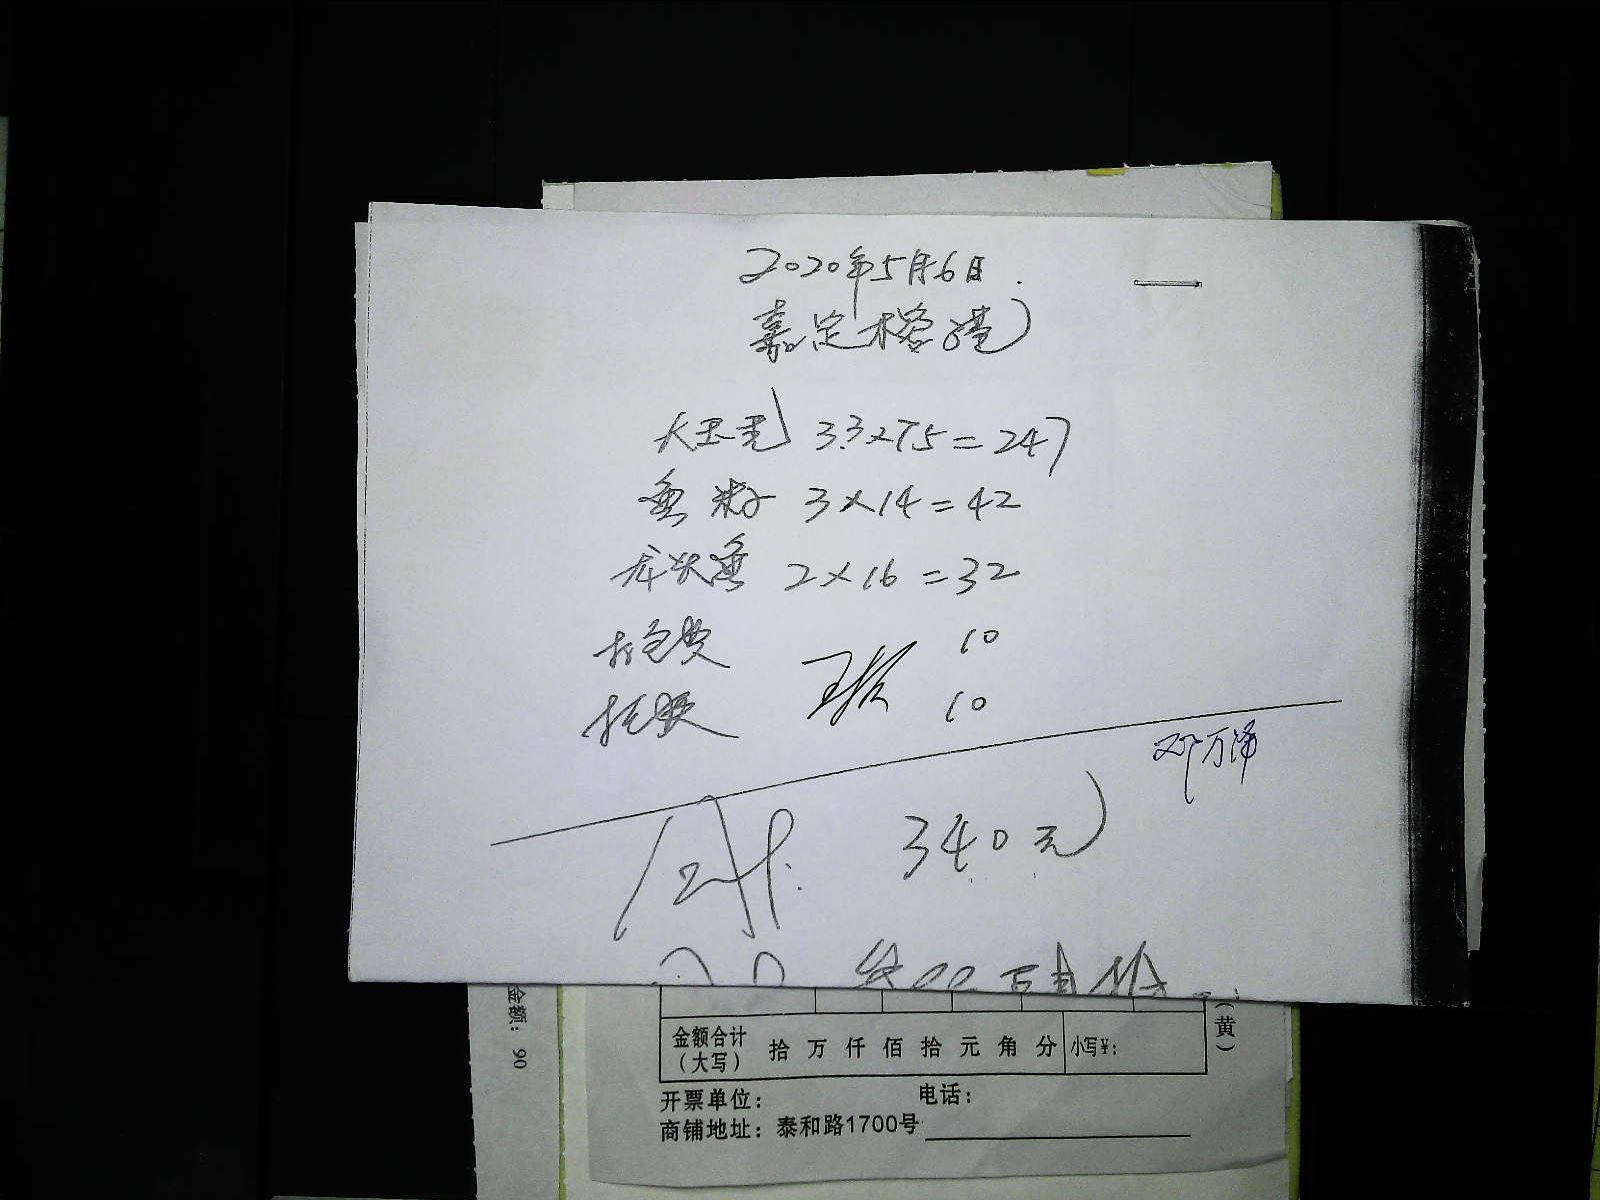 2020年5月6日
嘉定榕港
大玉秃 3.3×75=247
鱼籽 3×14=42
龙头鱼 2×16=32
打包费 10
托费 10
邓万泽
340元
金额合计
(大写) 拾 万 仟 佰 拾 元 角 分 小写¥:
(黄)
开票单位: 电话:
商铺地址: 泰和路1700号
金额: 90